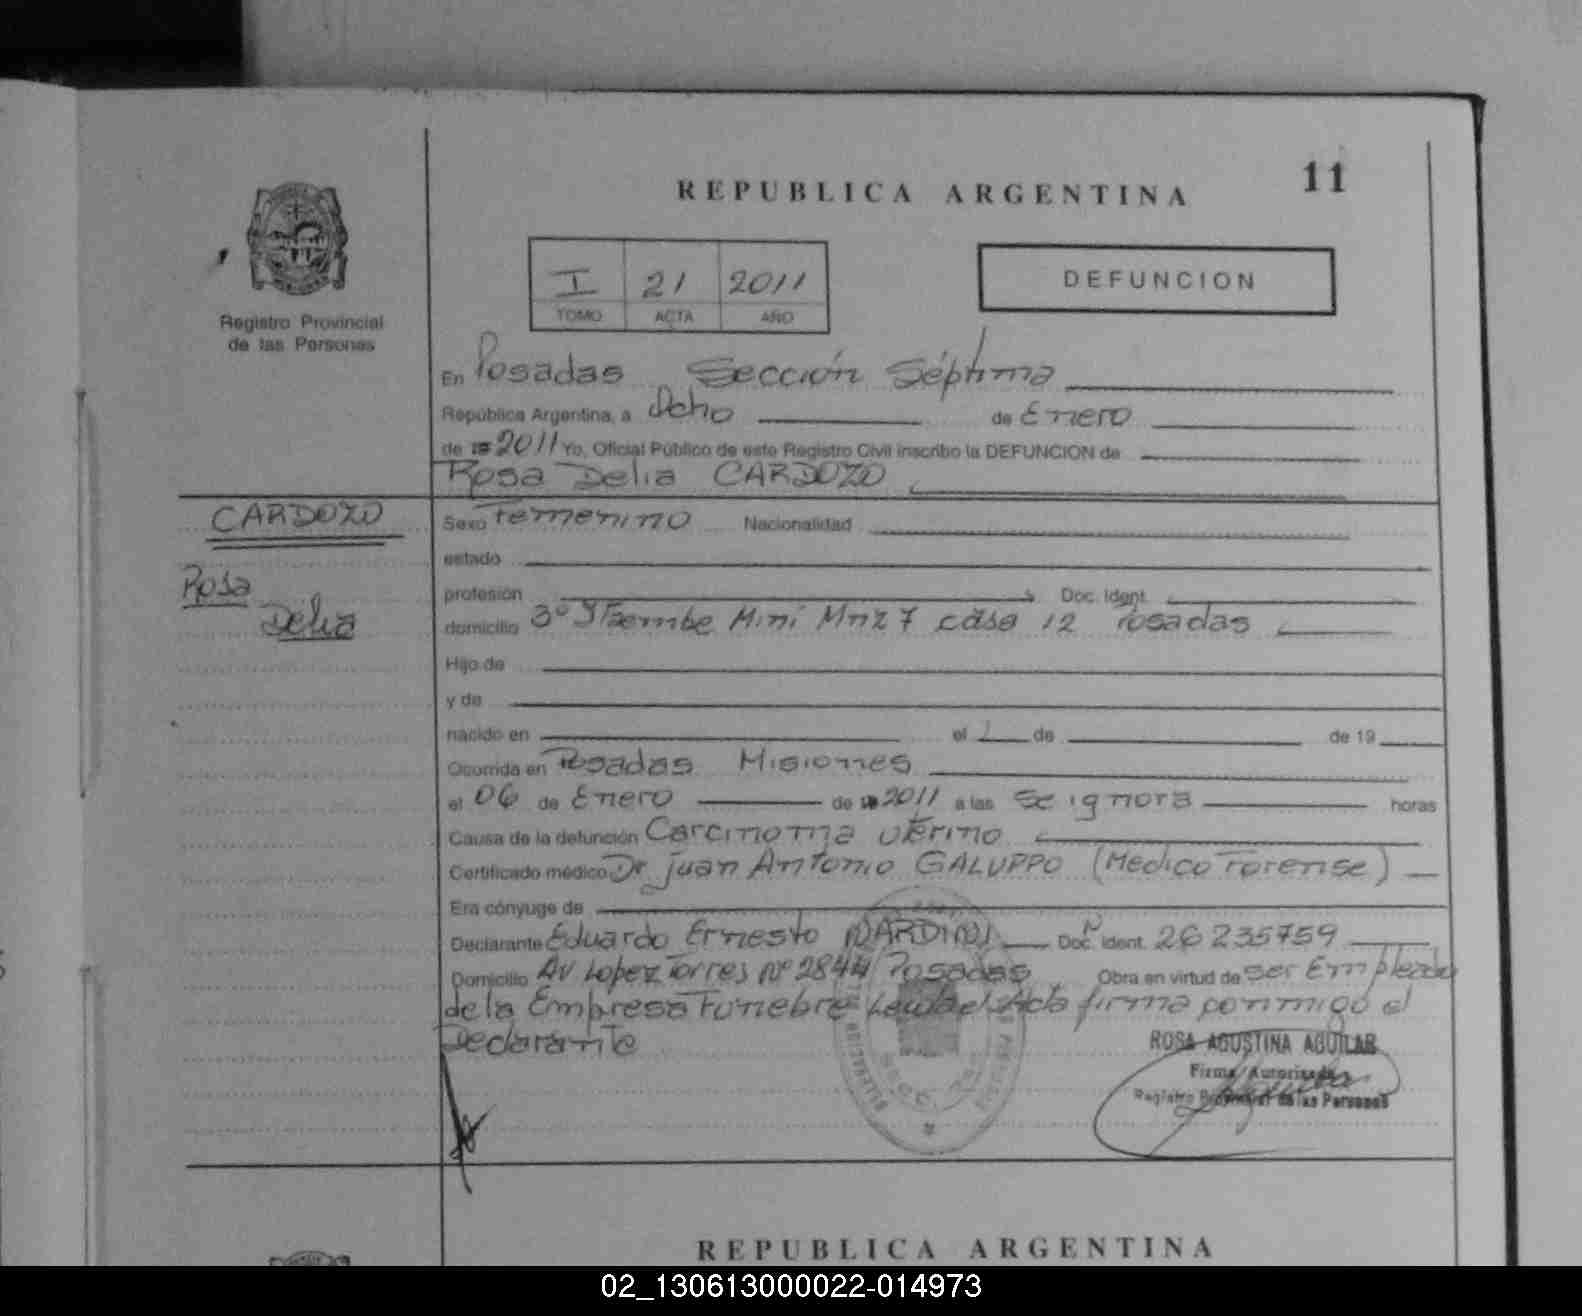 11
REPUBLICA ARGENTINA
I 21 2011
TOMO ACTA AÑO
DEFUNCION
Registro Provincial
de las Personas
En Posadas Sección Séptima
República Argentina, a Ocho de Enero
de 19 2011 Yo, Oficial Público de este Registro Civil inscribo la DEFUNCION de
Rosa Delia CARDOZO
CARDOZO
Rosa
Delia
Sexo Femenino Nacionalidad
estado
profesión Doc. Ident.
domicilio 3º Itaembe Mini Mnz 7 casa 12 Posadas
Hijo de
y de
nacido en el de de 19
Ocurrida en Posadas Misiones
el 06 de Enero de 19 2011 a las se ignora horas
Causa de la defunción Carcinoma uterino
Certificado médico Dr Juan Antonio GALUPPO (Medico Forense)
Era cónyuge de
Declarante Eduardo Ernesto NARDINI Doc. Ident. 26 235759
Domicilio Av Lopez Torres Nº 2844 Posadas Obra en virtud de ser Empleado
de la Empresa Funebre Leida el Acta firma conmigo el
Declarante
ROSA AGUSTINA AGUILAR
Firma Autorizada
Registro Provincial de las Personas
REPUBLICA ARGENTINA
02_130613000022-014973